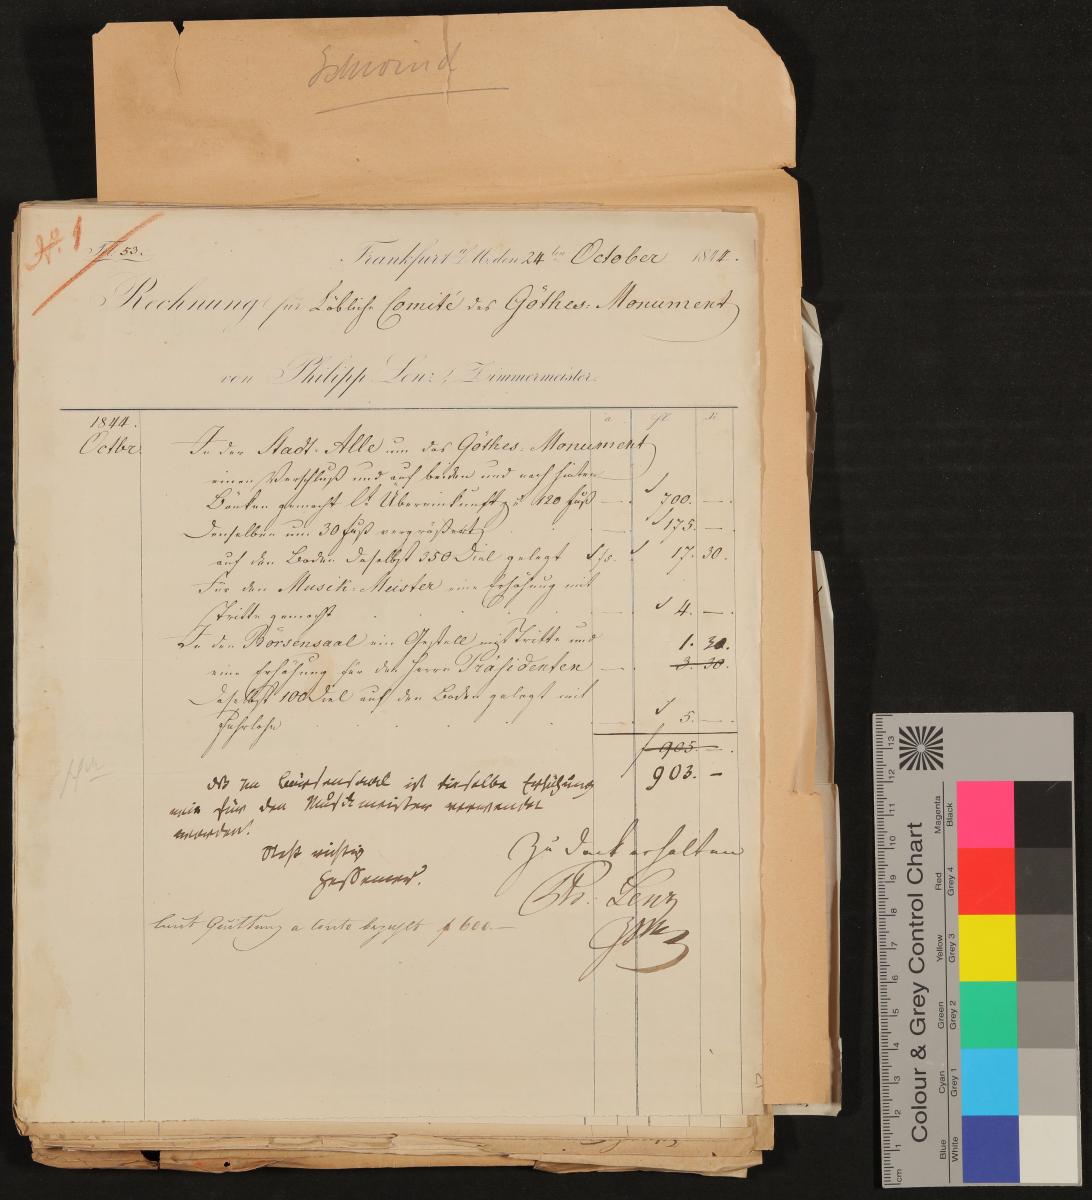 Schwind
No. 1
Fol 53.
Frankfurt a/M. den 24ten October 1844.
Rechnung für Löbliche Comité des Göthes-Monument
von Philipp Lenz, Zimmermeister.
1844.
Octbr.
In der Stadt-Alle um das Göthes-Monument
einen Verschluß und auf beiden und nach hinten
Bänken gemacht lt. Übereinkunft zu 120 Fuß — 700. —.
Denselben um 30 Fuß vergrößert 175. —
auf den Boden daselbst 350 Diel gelegt 17. 30.
Für den Musik-Meister eine Erhöhung mit
Tritte gemacht 4. —.
In den Börsensaal ein Gestell mit Tritte und 1. 30.
eine Erhöhung für den Herrn Präsidenten — 3. 30.
Daselbst 100 Diel auf den Boden gelegt mit
Fuhrlohn 5. —.
f 905. —.
903. —
NB im Börsensaal ist dieselbe Erhöhung
wie für den Musikmeister verwendet
worden.
Meß richtig
Hessemer.
Zu Dank erhalten
Ph. Lenz
laut Quittung a conto bezahlt f 600.—
Colour & Grey Control Chart
Blue Cyan Green Yellow Red Magenta
White Grey 1 Grey 2 Grey 3 Grey 4 Black
cm 1 2 3 4 5 6 7 8 9 10 11 12 13